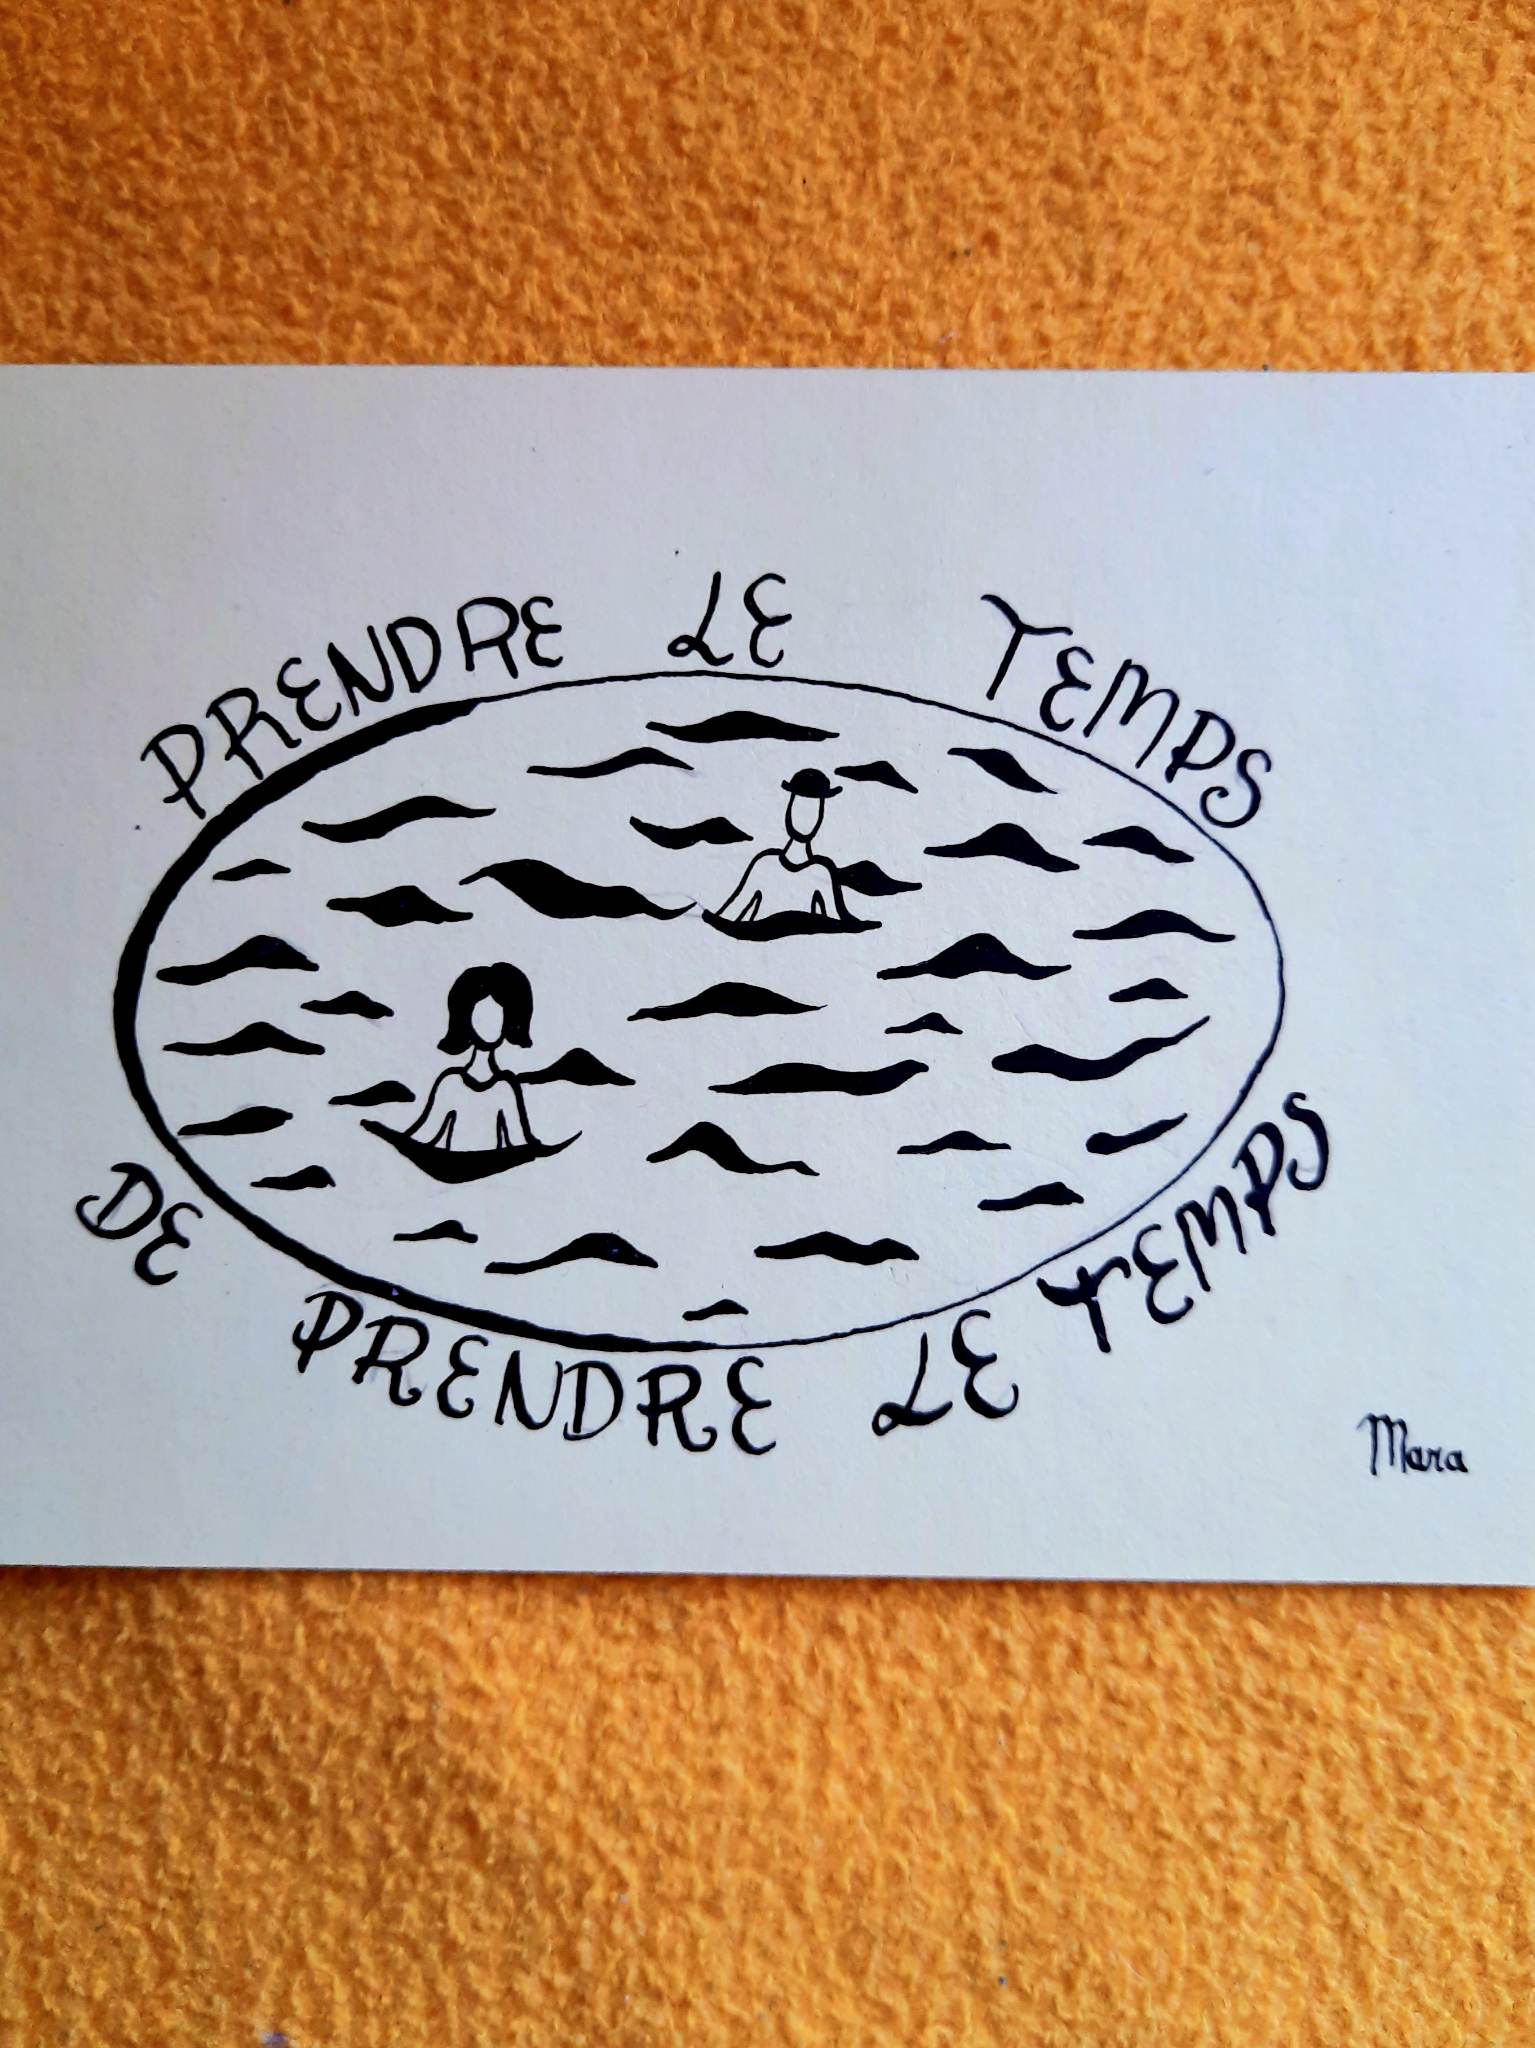 PRENDRE LE TEMPS
DE PRENDRE LE TEMPS
Mara